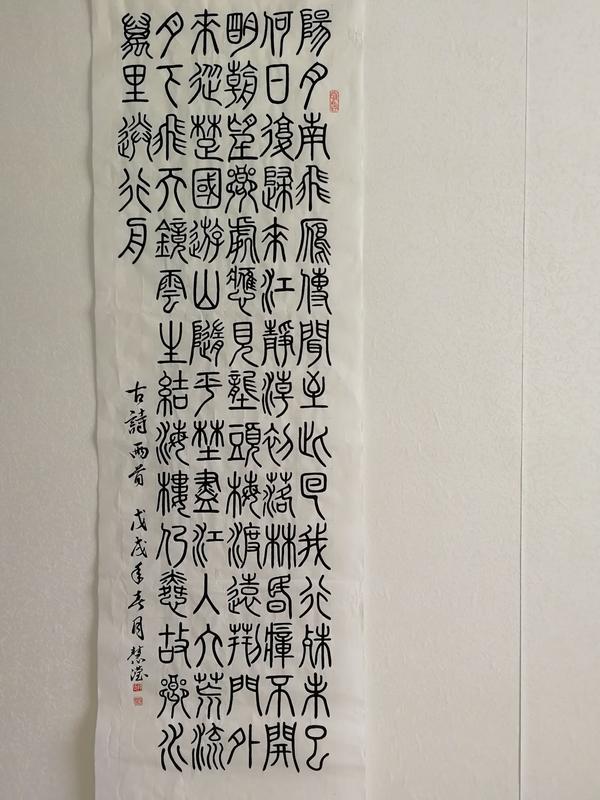 陽月南飛鴈傳聞至此回我行殊未已
何日復歸來江靜潮初落林昏瘴不開
明朝望鄉處應見壟頭梅渡遠荊門外
來從楚國遊山隨平埜盡江入大荒流
月下飛天鏡雲生結海樓乃憐故鄉水
萬里送行舟
古詩兩首 戊戌年春月慧瀅